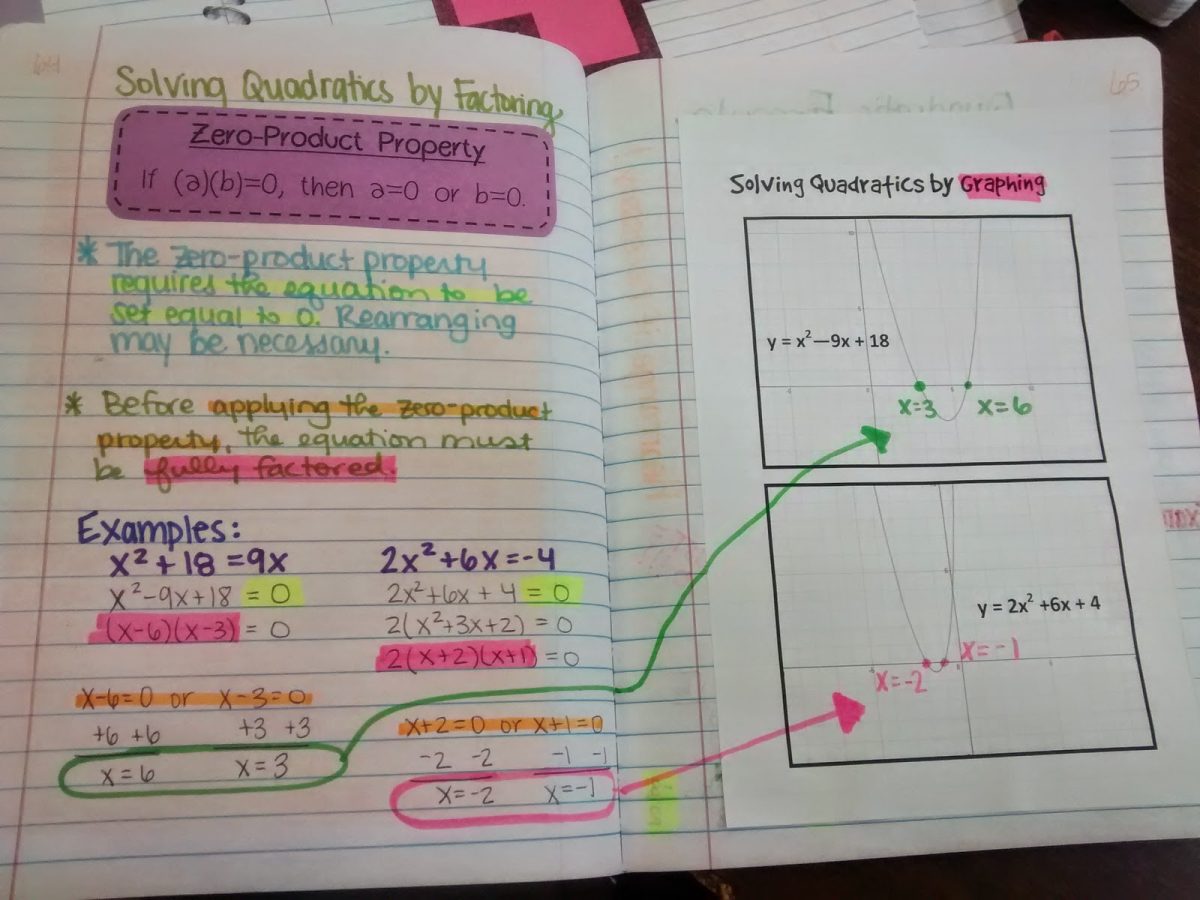 64
Solving Quadratics by Factoring
Zero-Product Property
If (a)(b)=0, then a=0 or b=0.
* The zero-product property
requires the equation to be
set equal to 0. Rearranging
may be necessary.
* Before applying the zero-product
property, the equation must
be fully factored.
Examples:
x²+18=9x
x²-9x+18 = 0
(x-6)(x-3) = 0
x-6=0 or x-3=0
+6 +6 +3 +3
x=6 x=3
2x²+6x=-4
2x²+6x+4 = 0
2(x²+3x+2) = 0
2(x+2)(x+1) = 0
x+2=0 or x+1=0
-2 -2 -1 -1
x=-2 x=-1
65
Solving Quadratics by Graphing
y = x²—9x + 18
x=3 x=6
y = 2x² +6x + 4
x=-1
x=-2